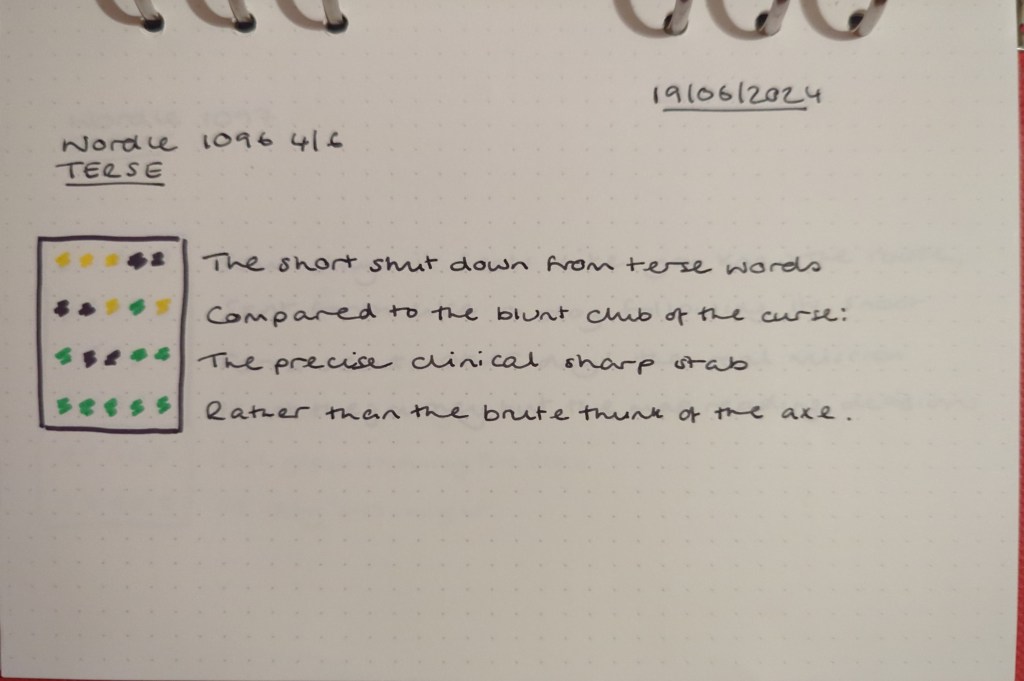 19/06/2024
Wordle 1096 4/6
TERSE
The short shut down from terse words
Compared to the blunt club of the curse:
The precise clinical sharp stab
Rather than the brute thunk of the axe.